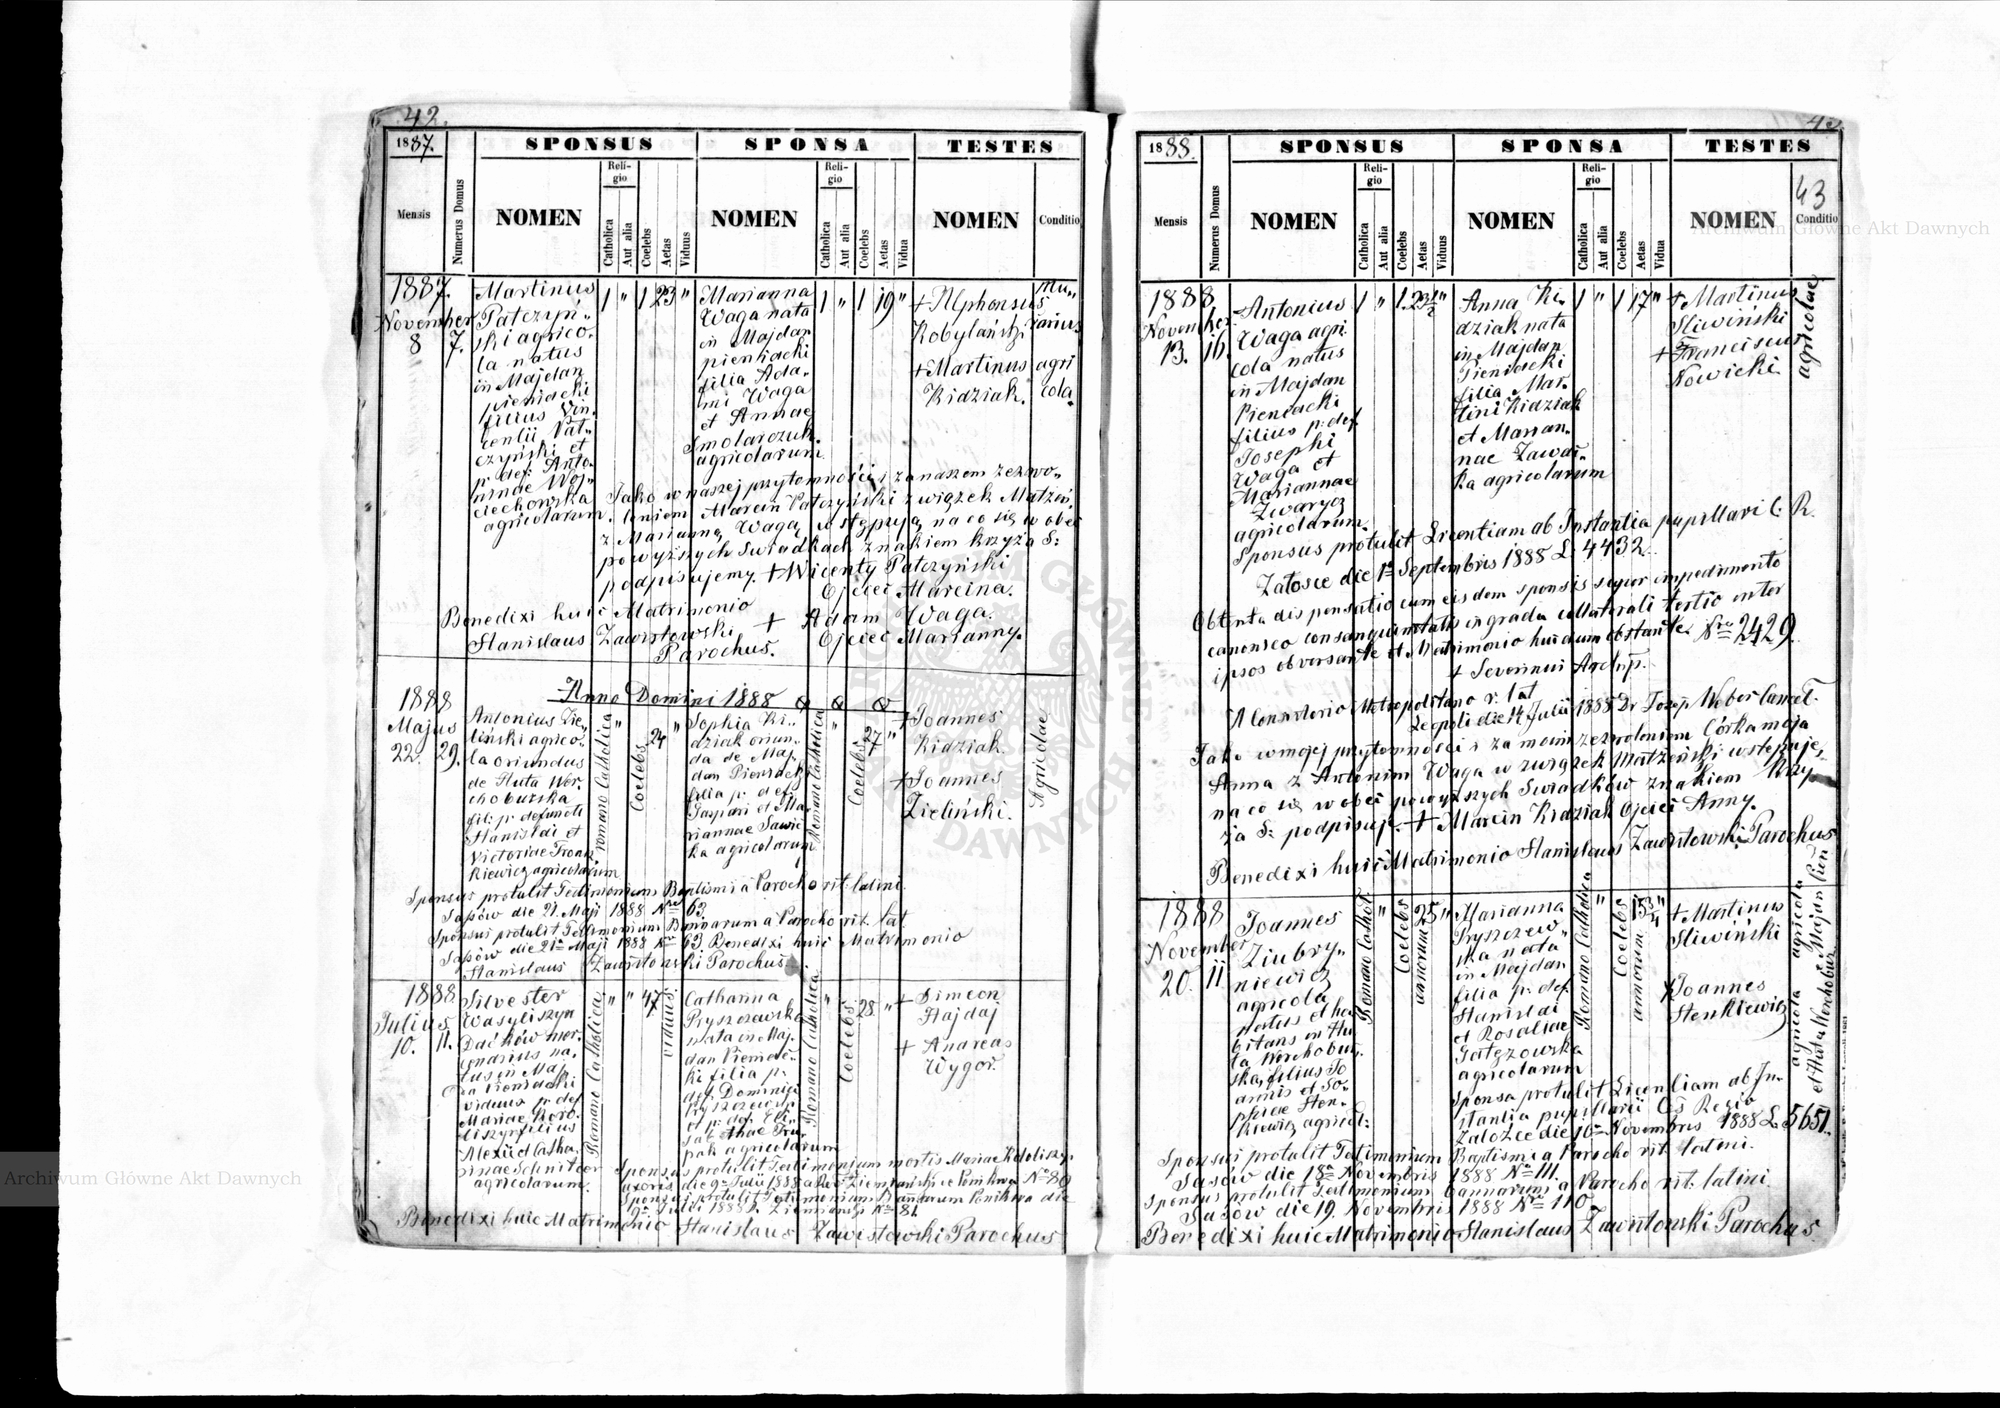 42.
1887.
SPONSUS
SPONSA
TESTES
Mensis
Numerus Domus
NOMEN
Religio
Catholica
Aut alia
Coelebs
Aetas
Viduus
NOMEN
Religio
Catholica
Aut alia
Coelebs
Aetas
Vidua
NOMEN
Conditio
1887.
November
8
7.
Martinus
Patczyń-
ski agrico-
la natus
in Majdan
pieniacki
filius Vin-
centii Pat-
czyński et
p: def: Anto-
ninae Woj-
ciechowska
agricolarum.
1 " 1 23 "
Marianna
Waga nata
in Majdan
pieniacki
filia Ada-
mi Waga
et Annae
Smolarczuk.
agricolarum
1 " 1 19 "
+ Alphonsus
Kobylański
+ Martinus
Kidziak.
agri
cola.
Jako w naszej przytomności i za naszem zezwo-
leniem Marcin Patczyński związek Małżeń.
z Marianną Waga, wstępują, na co się w obec
powyższych świadków znakiem krzyża S:
podpisujemy. + Wicenty Patczyński
Ojciec Marcina.
Benedixi huic Matrimonio
+ Adam Waga.
Stanislaus Zawistowski
Ojciec Marianny.
Parochus.
Anno Domini 1888
1888
Majus
22. 29.
Antonius Zie-
liński agrico-
la oriundus
de Huta Wer-
choburska
fil: p: defuncti
Stanislai et
Victoriae Frank
kiewicz agricolarum
Romano Catholica
"
Coelebs
24
"
Sophia Ki-
dziak oriun-
da de Maj-
dan Pieniacki
filia p: def:
Gaspari et Ma-
riannae Sawic-
ka agricolarum
Romano Catholica
"
Coelebs
27
"
+ Joannes
Kidziak.
+ Joannes
Zieliński.
Agricolae
Sponsus protulit Testimonium Baptismi a Parocho rit: latini
Sasów die 21. Maji 1888 Nro 63.
Sponsus protulit Testimonium Bannarum a Parocho rit: lat.
Sasów die 21a Maji 1888 Nro 63 Benedixi huic Matrimonio
Stanislaus Zawistowski Parochus
1888.
Julius
10. 11.
Silvester
Wasyliszyn
Daćków mer-
cenarius na-
tus in Maj-
Pieniacki
viduus p: def
Mariae Koro-
liszyn filius
Alexii et Catha-
rinae Schnitzer
agricolarum.
Romano Catholica
" "
47
viduus
Catharina
Pryszczewska
nata in Maj-
dan Pieniac-
ki filia p:
def: Dominici
Pryszczewski
et p: def: Eli-
sabethae Tru-
pak agricolarum
Romano Catholica
"
Coelebs
28
"
+ Simeon
Hajdaj
+ Andreas
Wygor.
Sponsus protulit Testimonium mortis Mariae Koroliszyn
uxoris die 9a Julii 1888 a Rev Ziemiański e Ponikwa No 80
Sponsus protulit Testimonium Bannarum Ponikwa die
9a Julii 1888 Ziemiański No 81.
Benedixi huic Matrimonio Stanislaus Zawistowski Parochus
43.
1888.
SPONSUS
SPONSA
TESTES
43
Mensis
Numerus Domus
NOMEN
Religio
Catholica
Aut alia
Coelebs
Aetas
Viduus
NOMEN
Religio
Catholica
Aut alia
Coelebs
Aetas
Vidua
NOMEN
Conditio
1888
November
13. 16.
Antonius
Waga agri-
cola natus
in Majdan
Pieniacki
filius p: def.
Josephi
Waga et
Mariannae
Zwarycz
agricolarum.
1 " 1. 23 1/2 "
Anna Ki-
dziak nata
in Majdan
Pieniacki
filia Mar-
tini Kidziak
et Marian-
nae Zawac-
ka agricolarum
1 " 1 17 "
+ Martinus
Sliwiński
+ Franciscus
Nowicki
agricolae
Sponsus protulit Licentiam ab Instantia pupillari C. R.
Załosce die 1a Septembris 1888 L. 4432.
Obtenta dispensatio cum eisdem sponsis super impedimento
canonico consanguinitatis in gradu collaterali tertio inter
ipsos obversante et Matrimonio huic dum obstante. Nro 2429.
+ Severinus Archp.
A Consistorio Metropolitano r: lat
Leopoli die 14 Julii 1888 Dr Józef Weber Cancel.
Jako w mojej przytomności i za moim zezwoleniem Córka moja
Anna z Antonim Waga w związek Małżeński wstępuje,
na co się w obec powyższych Swiadków znakiem Krzy-
ża S: podpisuję. + Marcin Kidziak Ojciec Anny.
Benedixi huic Matrimonio Stanislaus Zawistowski Parochus
1888
November
20. 11
Joannes
Ziubry-
niewicz
agricola
natus et ha-
bitans in Hu-
ta Werchobuż-
ska, filius Jo
annis et So-
phiae Sten-
kiewicz agricol:
Romano Cathol:
"
Coelebs
25
annorum
"
Marianna
Pryszczew-
ska nata
in Majdan
filia p: def.
Stanislai
et Rosaliae
Gałęzowska
agricolarum
Romano Catholica
"
Coelebs
15 3/4
annorum
"
+ Martinus
Sliwiński
Joannes
Stenkiewicz
agricola agricola
Sponsa protulit Licentiam ab In-
stantia pupillari Cs Regio
Załoźce die 10a Novembris 1888 L. 5651.
Sponsus protulit Testimonium Baptismi a Parocho rit: latini.
Sasów die 18a Novembris 1888 No 111.
Sponsus protulit Testimonium bannarum a Parocho rit: latini.
Sasów die 19. Novembris 1888 Nro 110
Benedixi huic Matrimonio Stanislaus Zawistowski Parochus.
Archiwum Główne Akt Dawnych
Archiwum Główne Akt Dawnych
ARCHIWUM GŁÓWNE AKT DAWNYCH